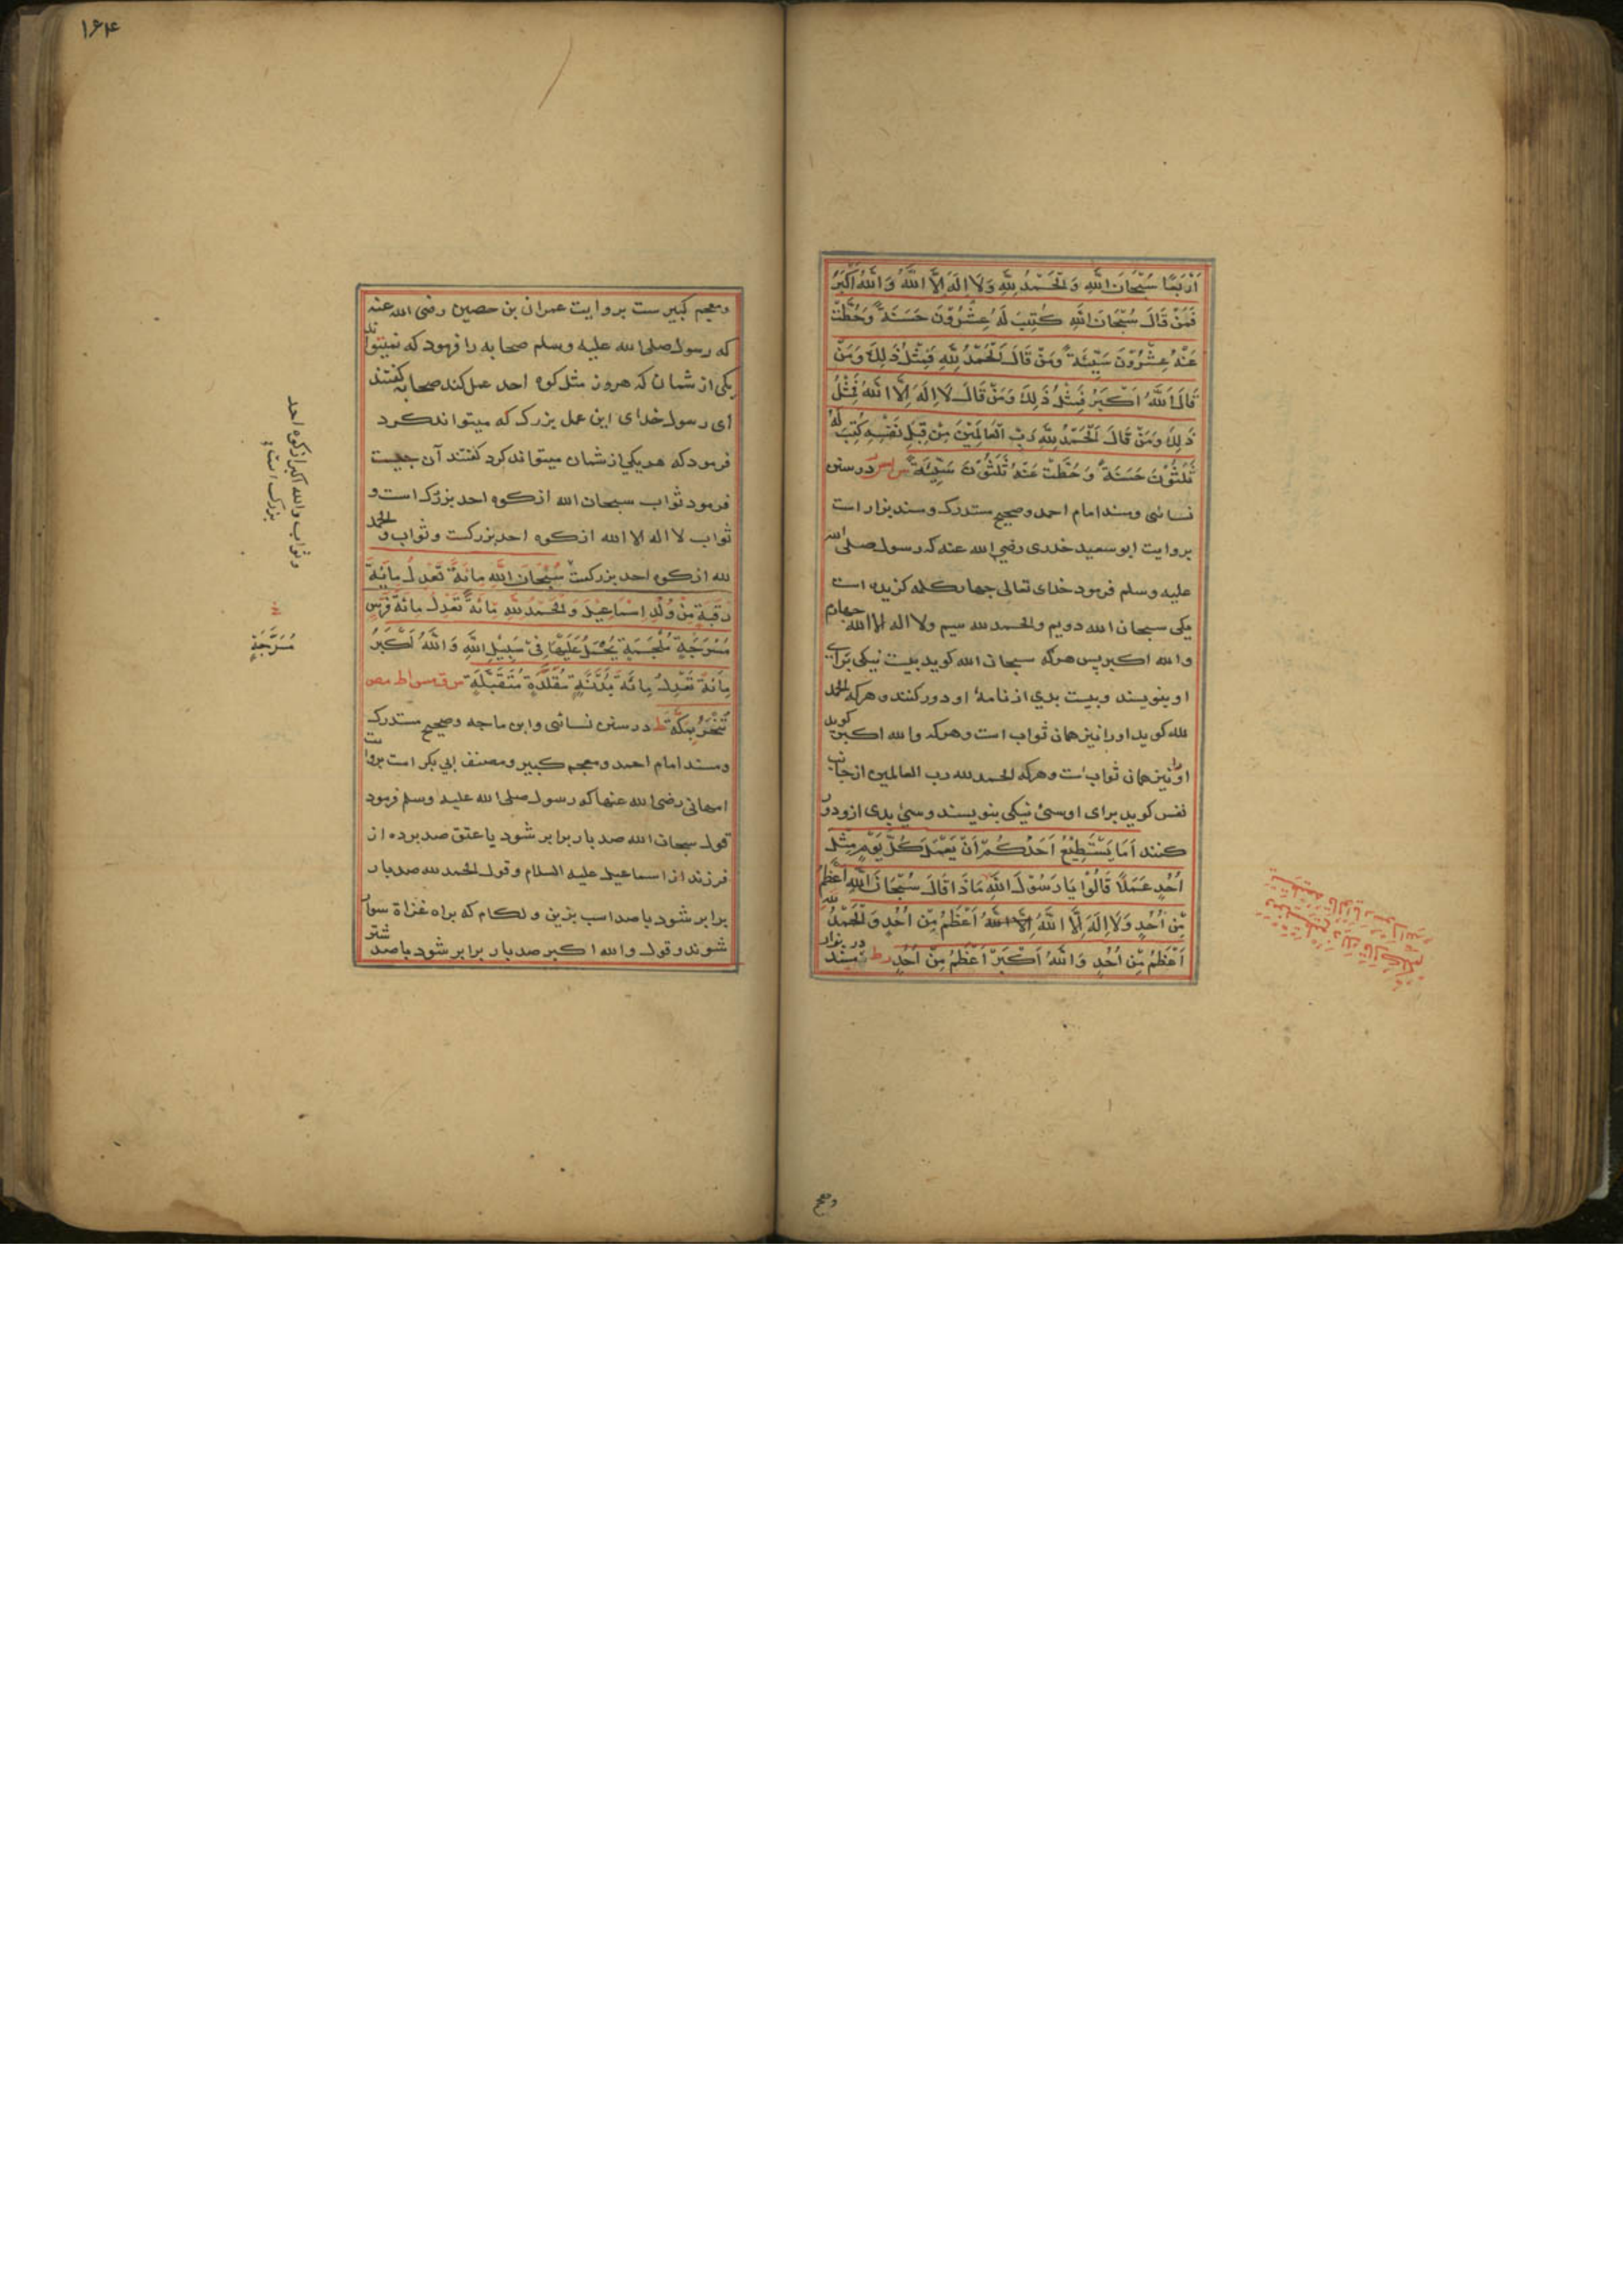 اَرْبَعًا سُبْحَانَ اللّٰهِ وَالْحَمْدُ لِلّٰهِ وَلَا اِلٰهَ اِلَّا اللّٰهُ وَاللّٰهُ اَكْبَرُ
فَمَنْ قَالَ سُبْحَانَ اللّٰهِ كُتِبَ لَهُ عِشْرُوْنَ حَسَنَةً وَحُطَّتْ
عَنْهُ عِشْرُوْنَ سَيِّئَةً وَمَنْ قَالَ اَلْحَمْدُ لِلّٰهِ فَمِثْلُ ذٰلِكَ وَمَنْ
قَالَ اَللّٰهُ اَكْبَرُ فَمِثْلُ ذٰلِكَ وَمَنْ قَالَ لَا اِلٰهَ اِلَّا اللّٰهُ فَمِثْلُ
ذٰلِكَ وَمَنْ قَالَ اَلْحَمْدُ لِلّٰهِ رَبِّ الْعَالَمِيْنَ مِنْ قِبَلِ نَفْسِهِ كُتِبَ لَهُ
ثَلٰثُوْنَ حَسَنَةً وَحُطَّتْ عَنْهُ ثَلٰثُوْنَ سَيِّئَةً در سنن
نسائی ومسند امام احمد وصحیح مستدرک ومسند بزار است
بروایت ابو سعید خدری رضی الله عنه که رسول صلی الله
علیه وسلم فرمود خدای تعالی چهار کلمه گزیده است
یکی سبحان الله دویم والحمد لله سیم ولا اله الا الله چهارم
والله اکبر پس هرکه سبحان الله کوید بیست نیکی برای
او بنویسند وبیست بدی از نامهٔ او دور کنند وهرکه الحمد
لله کوید اورا نیز همان ثواب است وهرکه والله اکبر کوید
اورا نیز همان ثواب است وهرکه الحمد لله رب العالمین از جانب
نفس کوید برای او سی نیکی بنویسند وسی بدی ازو دور
کنند اَمَا يَسْتَطِيْعُ اَحَدُكُمْ اَنْ يَعْمَلَ كُلَّ يَوْمٍ مِثْلَ
اُحُدٍ عَمَلًا قَالُوْا يَا رَسُوْلَ اللّٰهِ مَاذَا قَالَ سُبْحَانَ اللّٰهِ اَعْظَمُ
مِنْ اُحُدٍ وَلَا اِلٰهَ اِلَّا اللّٰهُ اَعْظَمُ مِنْ اُحُدٍ وَالْحَمْدُ لِلّٰهِ
اَعْظَمُ مِنْ اُحُدٍ وَاللّٰهُ اَكْبَرُ اَعْظَمُ مِنْ اُحُدٍ ر ط در مسند بزار
۱۶۴
ومعجم کبیر ست بروایت عمران بن حصین رضی الله عنه
که رسول صلی الله علیه وسلم صحابه را فرمود که نمیتواند
یکی از شمان که هر روز مثل کوه احد عمل کند صحابه کفتند
ای رسول خدای این عمل بزرک که میتواند کرد
فرمود که هر یکی از شمان میتواند کرد کفتند آن چیست
فرمود ثواب سبحان الله از کوه احد بزرک است و
ثواب لا اله الا الله از کوه احد بزرکست وثواب والحمد
لله از کوه احد بزرکست سُبْحَانَ اللّٰهِ مِائَةً تَعْدِلُ مِائَةَ
رَقَبَةٍ مِنْ وُلْدِ اِسْمَاعِيْلَ وَالْحَمْدُ لِلّٰهِ مِائَةً تَعْدِلُ مِائَةَ فَرَسٍ
مُسْرَجَةٍ مُلْجَمَةٍ يُحْمَلُ عَلَيْهَا فِيْ سَبِيْلِ اللّٰهِ وَاللّٰهُ اَكْبَرُ
مِائَةً تَعْدِلُ مِائَةَ بَدَنَةٍ مُقَلَّدَةٍ مُتَقَبَّلَةٍ س ق مس ا ط مص
تُنْحَرُ بِمَكَّةَ ط در سنن نسائی وابن ماجه وصحیح مستدرک
ومسند امام احمد ومعجم کبیر ومصنف ابی بکر است بروایت
امهانی رضی الله عنها که رسول صلی الله علیه وسلم فرمود
قول سبحان الله صد بار برابر شود با عتق صد برده از
فرزندان اسماعیل علیه السلام وقول الحمد لله صد بار
برابر شود با صد اسب بزین ولکام که براه غزاة سوار
شوند وقول والله اکبر صد بار برابر شود با صد شتر
وثواب والله اکبر از کوه احد
بزرک است
مُسَرَّجَةٍ